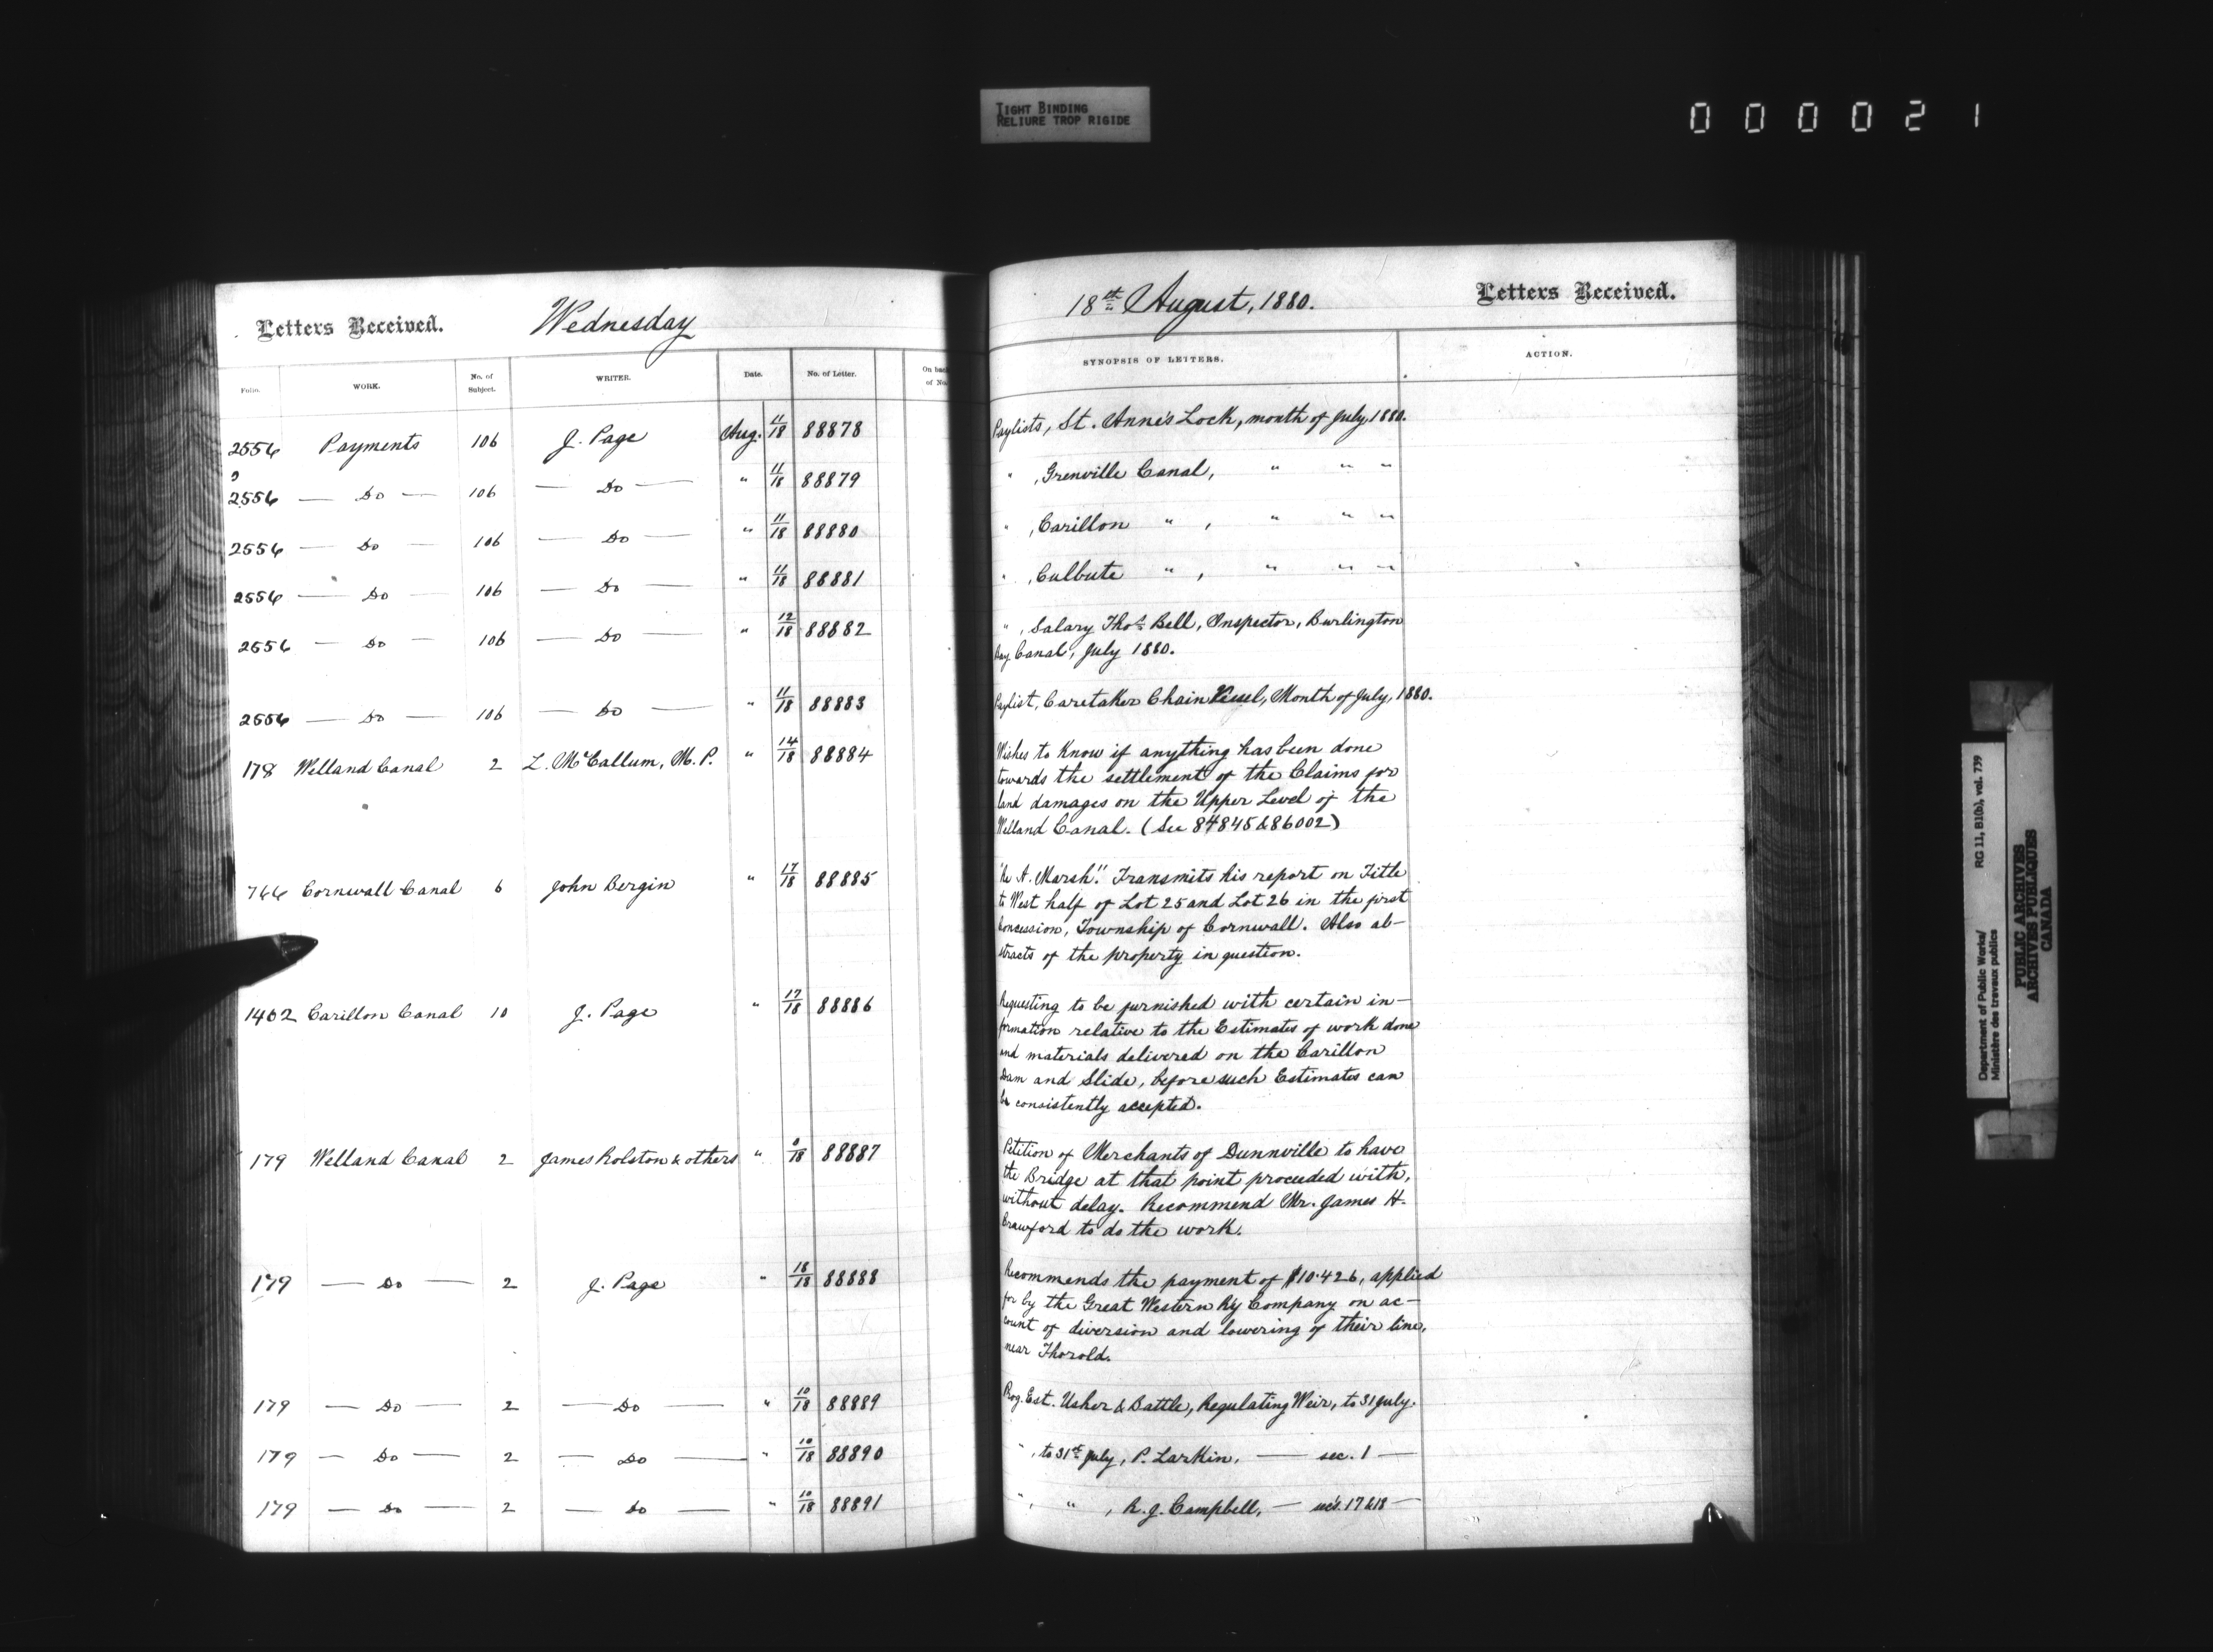 TIGHT BINDING
RELIURE TROP RIGIDE
0 0 0 0 2 1
Letters Received. Wednesday
18th August, 1880. Letters Received.
Folio. WORK. No. of Subject. WRITER. Date. No. of Letter. On back of No. SYNOPSIS OF LETTERS. ACTION.
2556 Payments 106 J. Page Aug. 11/18 88878 Paylists, St. Anne's Lock, month of July, 1880.
2556 — Do — 106 — Do — " 11/18 88879 " , Grenville Canal, " " "
2556 — Do — 106 — Do — " 11/18 88880 " , Carillon " , " " "
2556 — Do — 106 — Do — " 11/18 88881 " , Culbute " , " " "
2556 — Do — 106 — Do — " 12/18 88882 " , Salary Thos. Bell, Inspector, Burlington
Bay Canal, July 1880.
2556 — Do — 106 — Do — " 11/18 88883 Paylist, Caretaker Chain Vessel, Month of July, 1880.
178 Welland Canal 2 L. McCallum, M.P. " 14/18 88884 Wishes to know if anything has been done
towards the settlement of the Claims for
land damages on the Upper Level of the
Welland Canal. (See 84845 & 86002)
766 Cornwall Canal 6 John Bergin " 17/18 88885 "Re A. Marsh." Transmits his report on Title
to West half of Lot 25 and Lot 26 in the first
Concession, Township of Cornwall. Also ab-
stracts of the property in question.
1462 Carillon Canal 10 J. Page " 17/18 88886 Requesting to be furnished with certain in-
formation relative to the Estimates of work done
and materials delivered on the Carillon
Dam and Slide, before such Estimates can
be consistently accepted.
179 Welland Canal 2 James Rolston & others " 0/18 88887 Petition of Merchants of Dunnville to have
the Bridge at that point proceeded with,
without delay. Recommend Mr. James H.
Crawford to do the work.
179 — Do — 2 J. Page " 18/18 88888 Recommends the payment of $10.426, applied
for by the Great Western Ry Company on ac-
count of diversion and lowering of their line,
near Thorold.
179 — Do — 2 — Do — " 10/18 88889 Prog. Est. Usher & Battle, Regulating Weir, to 31 July.
179 — Do — 2 — Do — " 10/18 88890 " , to 31st July, P. Larkin, — sec. 1 —
179 — Do — 2 — Do — " 10/18 88891 " , " , R. J. Campbell, — sec's. 17 & 18 —
Department of Public Works/ RG 11, B10(b), vol. 739
Ministère des travaux publics
PUBLIC ARCHIVES
ARCHIVES PUBLIQUES
CANADA